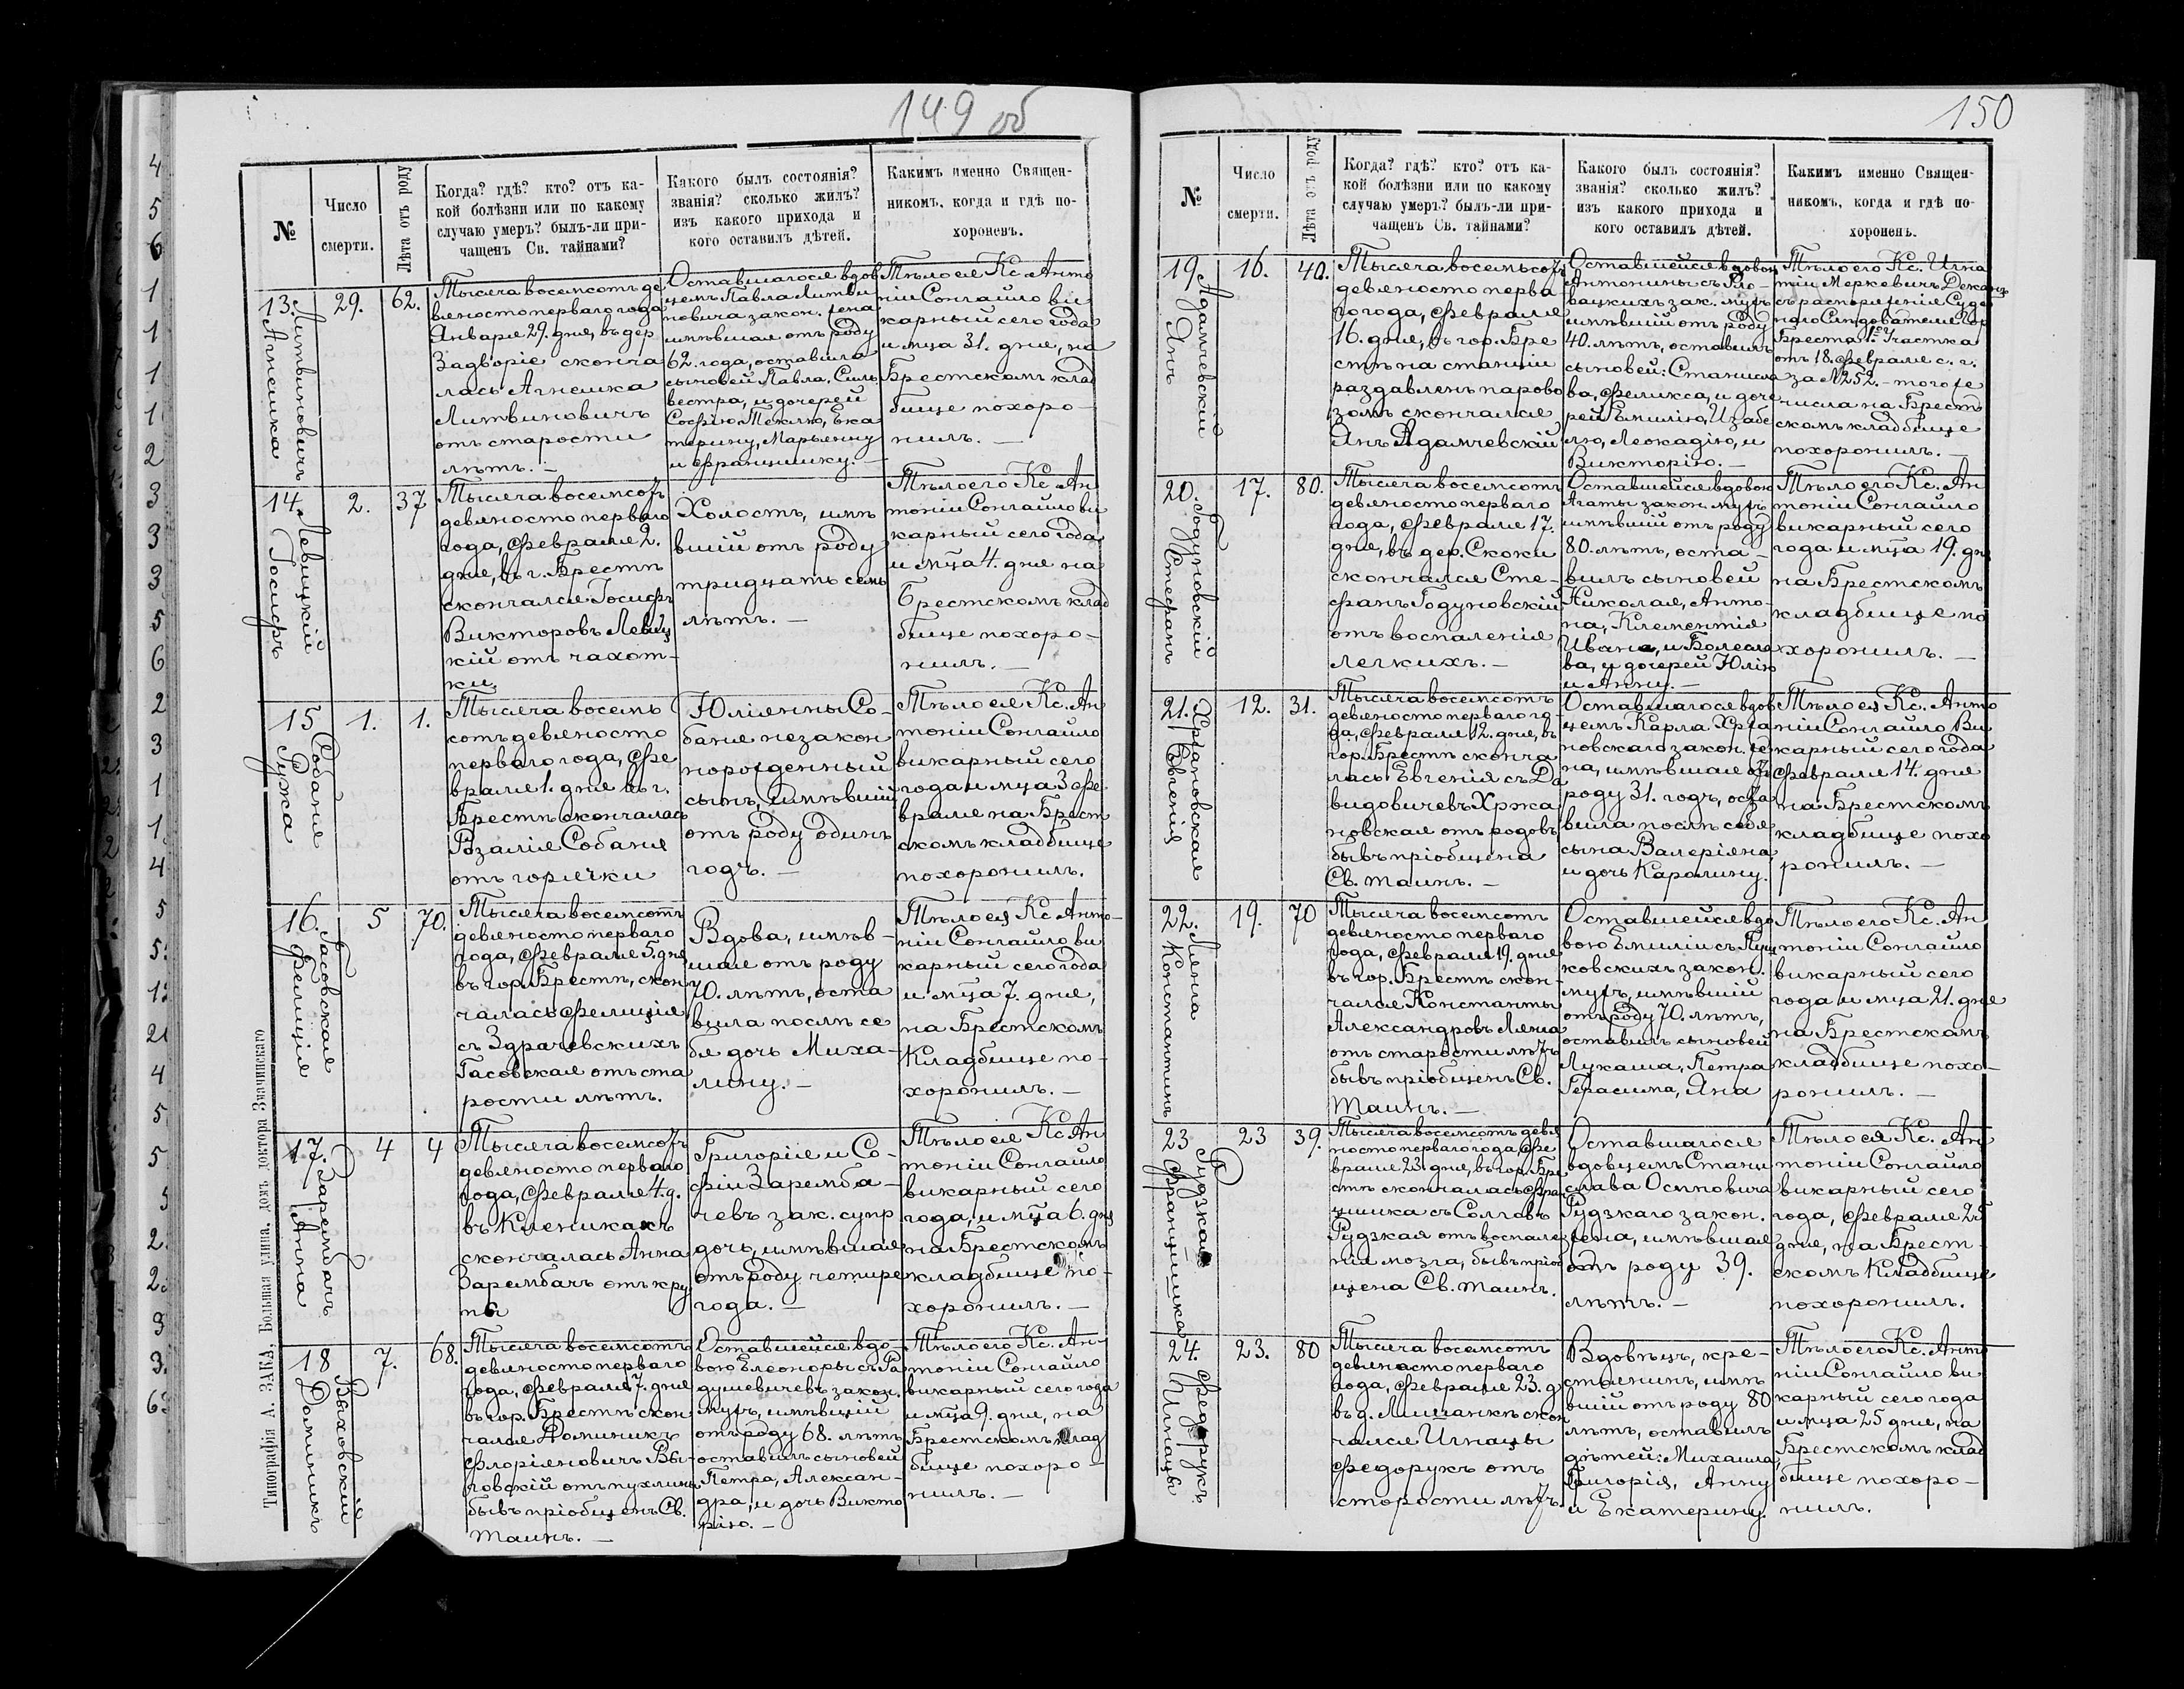 149 об
№
Число
смерти.
Лѣта отъ роду
Когда? гдѣ? кто? отъ ка-
кой болѣзни или по какому
случаю умеръ? былъ-ли при-
чащенъ Св. тайнами?
Какого былъ состоянія?
званія? сколько жилъ?
изъ какого прихода и
кого оставилъ дѣтей.
Какимъ именно Священ-
никомъ, когда и гдѣ по-
хороненъ.
13.
Литвиновичъ
Агнешка
29.
62.
Тысяча восемсотъ де
вяностоперваго года
Января 29. дня, въ дер
Задворіе сконча
лась Агнешка
Литвиновичъ
отъ старости
лѣтъ. –
Оставшагося вдов
цемъ Павла Литви
новича закон. жена
имѣвшая отъ роду
62. года, оставила
сыновей Павла, Силь
вестра, и дочерей
Софію, Теклю, Ека
терину, Марьянну
и Францишку. –
Тѣло ея Кс. Анто
ній Сонгайло ви
карный сего года
и мца 31. дня, на
Брестскомъ клад
бище похоро-
нилъ. –
14.
Левицкій
Іосифъ
2.
37
Тысяча восемсотъ
девяносто перваго
года, Февраля 2.
дня, въ г. Брестѣ
скончался Іосифъ
Викторовъ Левиц
кій отъ чахот-
ки.
Холостъ, имѣ
вшій отъ роду
тридцать семь
лѣтъ. –
Тѣло его Кс. Ан
тоній Сонгайло ви
карный сего года
и мца 4. дня на
Брестскомъ клад
бище похоро-
нилъ. –
15
Собаня
Ружа
1.
1.
Тысяча восемь
сотъ девяносто
перваго года, Фе
враля 1. дня въ г.
Брестѣ скончалась
Розалія Собаня
отъ горячки
Юліянны Со-
баня незакон
норожденный
сынъ, имѣвшій
отъ роду одинъ
годъ. –
Тѣло ея Кс. Ан
тоній Сонгайло
викарный сего
года и мца 3 Фе
враля на Брест
скомъ кладбище
похоронилъ.
16.
Гасовская
Фелиція
5
70.
Тысяча восемсотъ
девяносто перваго
года, Февраля 5. дня
въ гор. Брестѣ, скон
чалась Фелиція
съ Здрачевскихъ
Гасовская отъ ста
рости лѣтъ.
Вдова, имѣв-
шая отъ роду
70. лѣтъ, оста
вила послѣ се
бя дочь Миха-
лину. –
Тѣло ея Кс. Анто-
ній Сонгайло ви
карный сего года
и мца 7. дня,
на Брестскомъ
Кладбище по-
хоронилъ. –
17.
Зарембачъ
Анна
4
4
Тысяча восемсотъ
девяносто перваго
года, Февраля 4. д.
въ Клейникахъ
скончалась Анна
Зарембачъ отъ кру
пы
Григорія и Со-
фіи Заремба-
чевъ зак. супр
дочь, имѣвшая
отъ роду четыре
года. –
Тѣло ея Кс. Ан
тоній Сонгайло
викарный сего
года, и мца 6. дня
на Брестскомъ
кладбище по-
хоронилъ. –
18
Выховскій
Доминикъ
7.
68.
Тысяча восемсотъ
девяносто перваго
года, Февраля 7. дня
въ гор. Брестѣ скон
чался Доминикъ
Флоріяновичъ Вы-
ховскій отъ пухлины
бывъ пріобщенъ Св.
Таинъ. –
Оставшейся вдо-
вою Елеоноры съ Ра
душевичевъ закон.
мужъ, имѣвшій
отъ роду 68. лѣтъ
оставилъ сыновей
Петра, Алексан-
дра, и дочь Викто
рію. –
Тѣло его Кс. Ан-
тоній Сонгайло
викарный сего года
и мца 9. дня, на
Брестскомъ клад
бище похоро-
нилъ. –
Типографія А. ЗАКА, Большая улица, домъ доктора Значинскаго
150
№
Число
смерти.
Лѣта отъ роду
Когда? гдѣ? кто? отъ ка-
кой болѣзни или по какому
случаю умеръ? былъ-ли при-
чащенъ Св. тайнами?
Какого былъ состоянія?
званія? сколько жилъ?
изъ какого прихода и
кого оставилъ дѣтей.
Какимъ именно Священ-
никомъ, когда и гдѣ по-
хороненъ.
19.
Адамчевскій
Янъ
16.
40.
Тысяча восемьсотъ
девяносто перва
го года, Февраля
16. дня, въ гор. Бре
стѣ на станціи
раздавленъ парово
зомъ скончался
Янъ Адамчевскій
Оставшейся вдовою
Антонины съ
зак. мужъ
имѣвшій отъ роду
40. лѣтъ, оставилъ
сыновей: Станисла
ва, Феликса, и доче
рей Емилію, Изабе
лю, Леокадію, и
Викторію. –
Тѣло его Кс. Игна
тій Меркевичъ Деканъ
съ распоряженія Суде
бнаго Слѣдователя гор
Бреста 1го Участка
отъ 18. Февраля с. г.
за №252. – того же
числа на Брестъ
скомъ кладбище
похоронилъ. –
20.
Годуновскій
Стефанъ
17.
80.
Тысяча восемсотъ
девяносто перваго
года, Февраля 17.
дня, въ дер. Скоки
скончался Сте-
фанъ Годуновскій
отъ воспаленія
легкихъ. –
Оставшейся вдовою
Агаты закон. мужъ
имѣвшій отъ роду
80. лѣтъ, оста-
вилъ сыновей
Николая, Анто-
на, Клементія
Ивана, и Болесла
ва, и дочерей Юлію
и Анну. –
Тѣло его Кс. Ан
тоній Сонгайло
викарный сего
года и мца 19. дня
на Брестскомъ
кладбище по
хоронилъ. –
21.
Хржановская
Евгенія
12.
31.
Тысяча восемсотъ
девяносто перваго го-
да, Февраля 12. дня, въ
гор. Брестѣ сконча
лась Евгенія съ Да
видовичевъ Хржа
новская отъ родовъ
бывъ пріобщена
Св. Таинъ. –
Оставшагося вдов
цемъ Карла Хржа
новскаго закон. же
на, имѣвшая отъ
роду 31. годъ, оста
вила послѣ себя
сына Валеріяна
и дочь Каролину.
Тѣло ея Кс. Анто
ній Сонгайло Ви
карный сего года
Февраля 14. дня
на Брестскомъ
кладбище похо
ронилъ. –
22.
Ляна
Константинъ
19.
70
Тысяча восемсотъ
девяносто перваго
года, Февраля 19. дня
въ гор. Брестѣ скон-
чался Константы
Александровъ Ляна
отъ старости лѣтъ
бывъ пріобщенъ Св.
Таинъ. –
Оставшейся вдо
вою Емиліи съ Пуч
ковскихъ закон.
мужъ, имѣвшій
отъ роду 70. лѣтъ,
оставилъ сыновей
Лукаша, Петра
Герасима, Яна
Тѣло его Кс. Ан
тоній Сонгайло
викарный сего
года и мца 21. дня
на Брестскомъ
кладбище похо-
ронилъ. –
23
Рудзкая
Францишка
23
39.
Тысяча восемсотъ девя
ностоперваго года, Фе
враля 23. дня, въ гор. Бре
стѣ скончалась Фран
цишка съ
Рудзкая отъ воспале
нія мозга, бывъ пріоб
щена Св. Таинъ.
Оставшагося
вдовцемъ Стани
слава Осиповича
Рудзкаго закон.
жена, имѣвшая
отъ роду 39.
лѣтъ. –
Тѣло ея Кс. Ан
тоній Сонгайло
викарный сего
года, Февраля 25
дня, на Брест-
скомъ Кладбище
похоронилъ.
24.
Федорукъ
Игнацы
23.
80
Тысяча восемсотъ
девяносто перваго
года, Февраля 23. д.
въ д. скон
чался Игнацы
Федорукъ отъ
старости лѣтъ.
Вдовецъ, кре-
стянинъ, имѣ
вшій отъ роду 80
лѣтъ, оставилъ
дѣтей: Михаила,
Григорія, Анну
и Екатерину.
Тѣло его Кс. Анто
ній Сонгайло ви
карный сего года
и мца 25 дня, на
Брестскомъ клад
бище похоро-
нилъ.